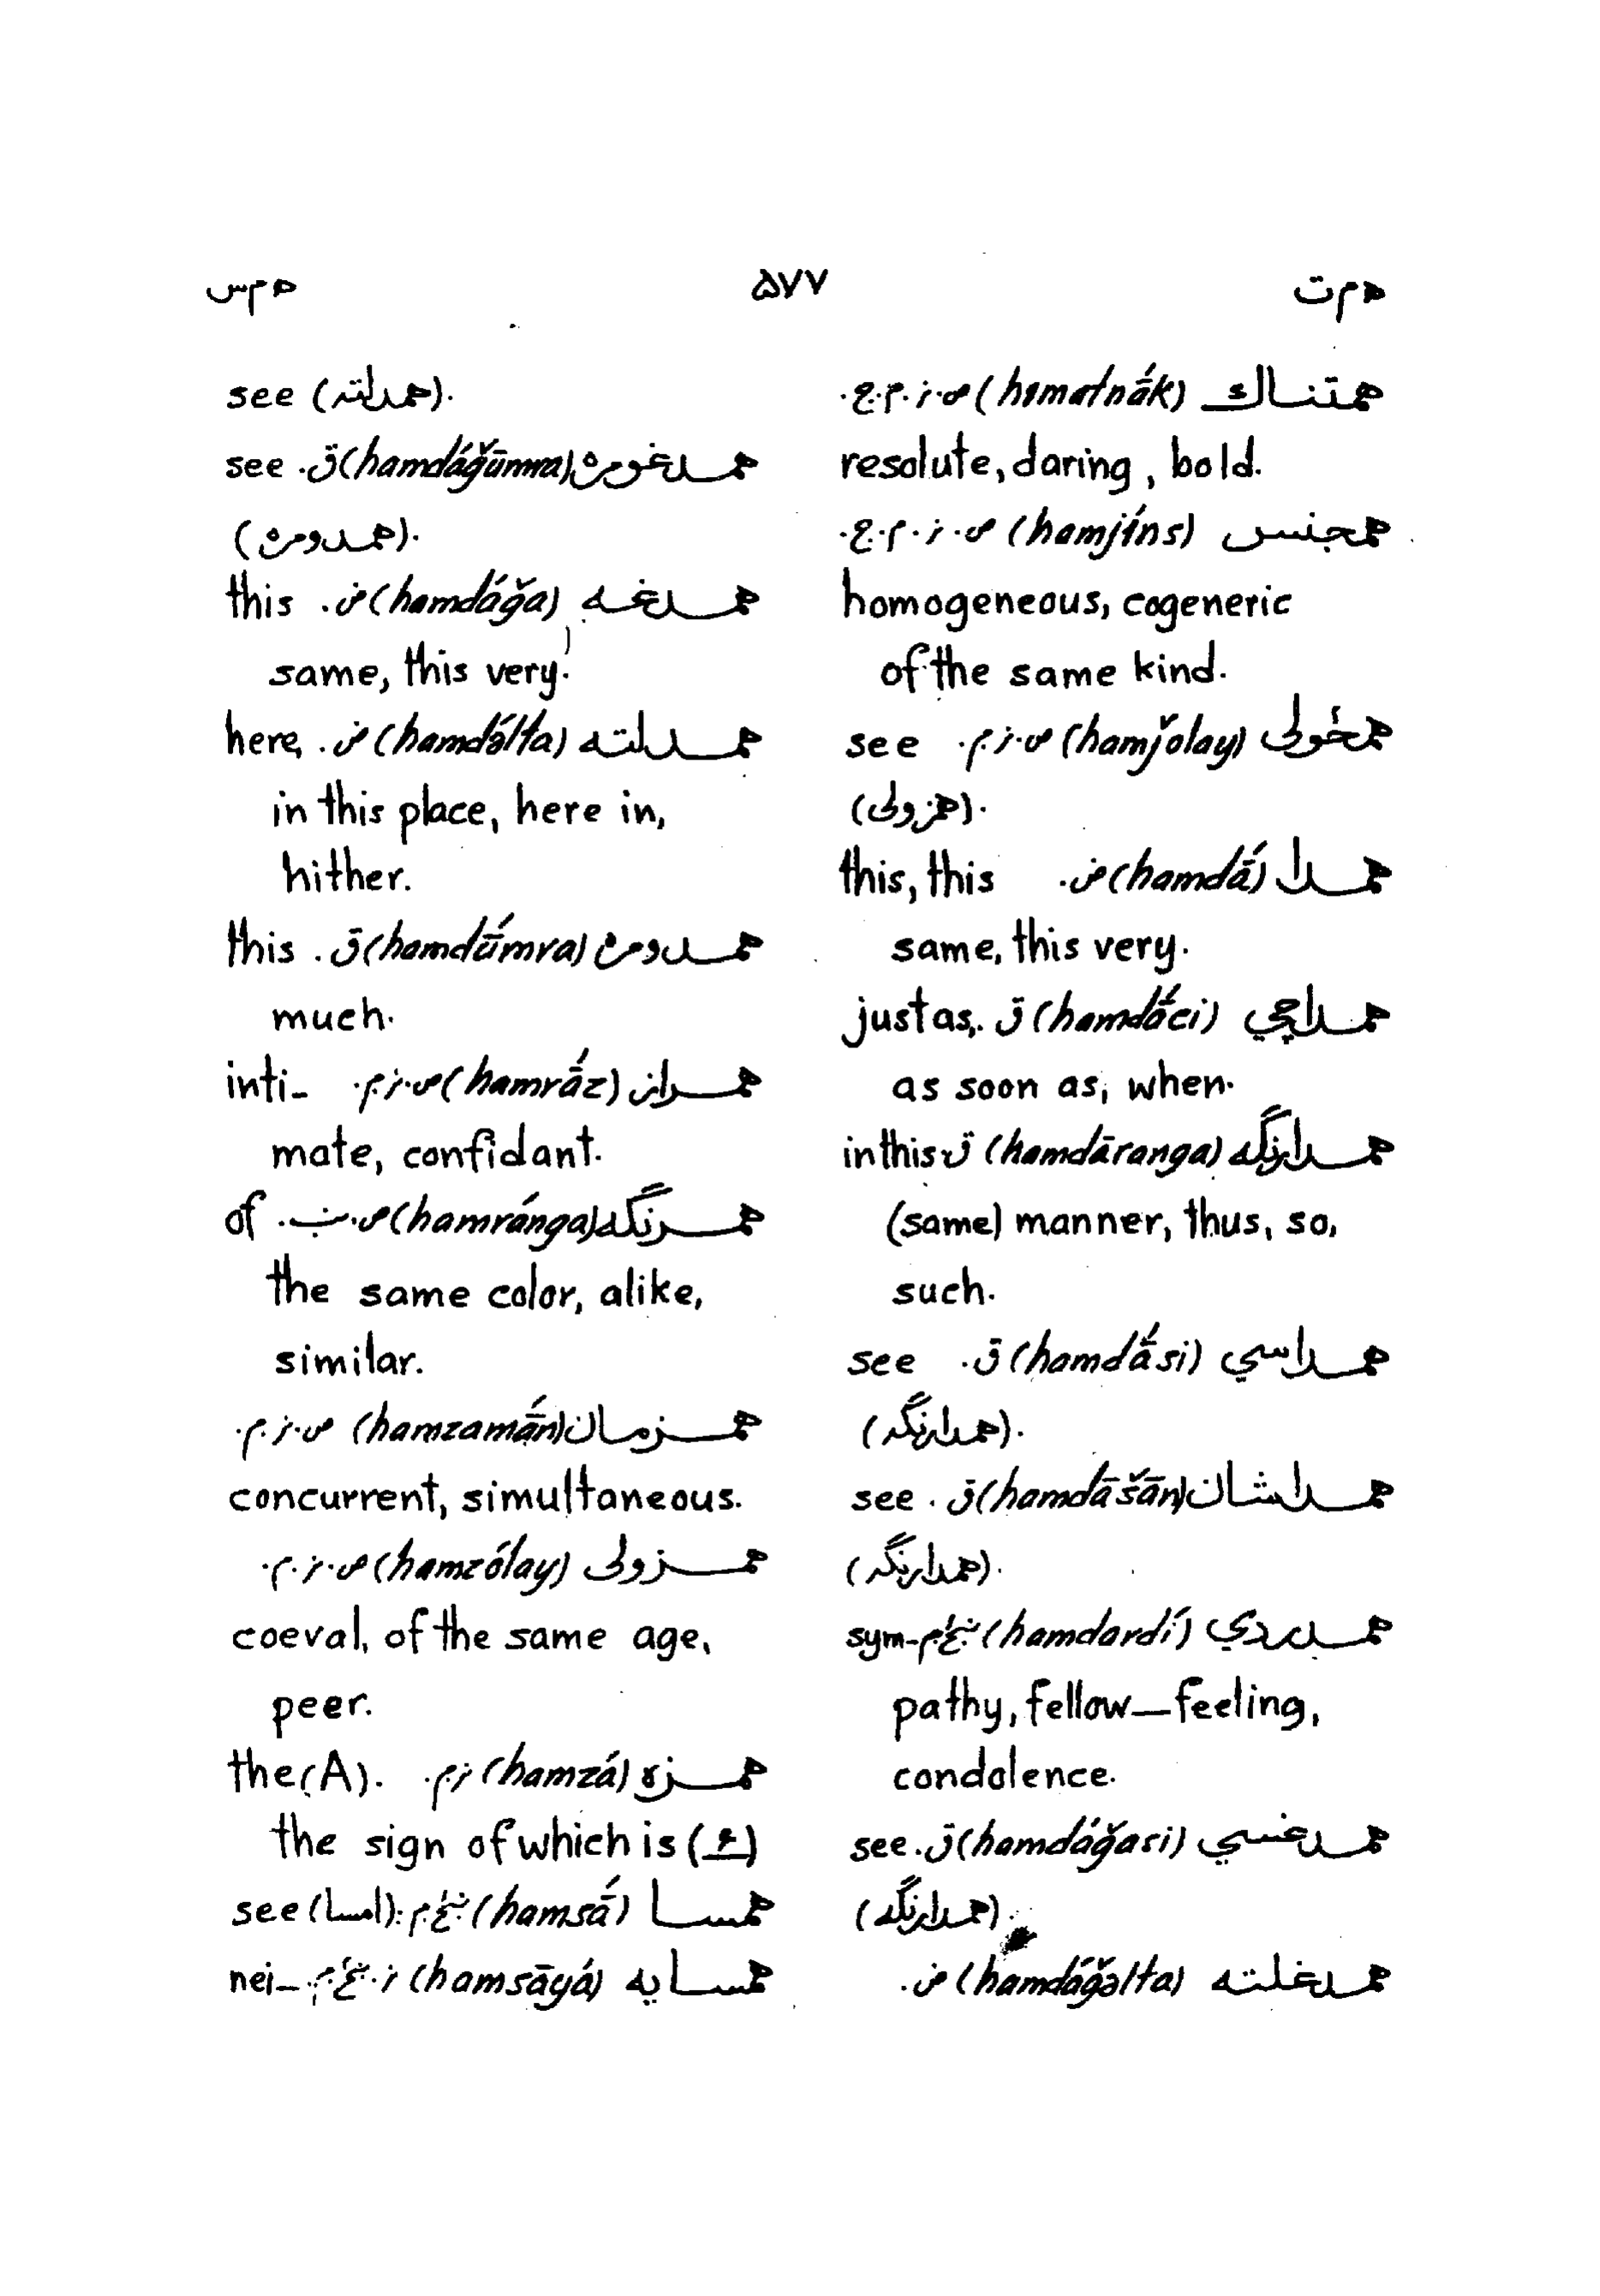 ه م ت ۵۷۷ ه م س
همتناك (hematnā́k) ص. ز. م. ج.
resolute, daring, bold.
همجنس (hamjíns) ص. ز. م. ج.
homogeneous, cogeneric
of the same kind.
همځولی (hamǰolay) ص. ز. م. see
(همزولی).
همدا (hamdā́) ض. this, this
same, this very.
همداچي (hamdā́ci) ق. just as,
as soon as, when.
همدارنگه (hamdāranga) ق in this
(same) manner, thus, so,
such.
همداسي (hamdā́si) ق. see
(همدارنگه).
همداشان (hamdāšān) ق. see
(همدارنگه).
همدردي (hamdardí) sym-
pathy, fellow—feeling,
condolence.
همدغسي (hamdáğasi) ق. see
(همدارنگه).
همدغلته (hamdáğəlta) ض.
see (همدلته).
همدغومره (hamdáğūmra) ق. see
(همدومره).
همدغه (hamdáğa) ض. this
same, this very.
همدلته (hamdə́lta) ض. here,
in this place, here in,
hither.
همدومره (hamdū́mra) ق. this
much.
همراز (hamrā́z) ص. ز. م. inti-
mate, confidant.
همرنگه (hamránga) ص. of
the same color, alike,
similar.
همزمان (hamzamā́n) ص. ز. م.
concurrent, simultaneous.
همزولی (hamzólay) ص. ز. م.
coeval, of the same age,
peer.
همزه (hamzá) ز. م. the (A).
the sign of which is (ء)
همسا (hamsā́) see (امسا).
همسایه (hamsāyá) nei-